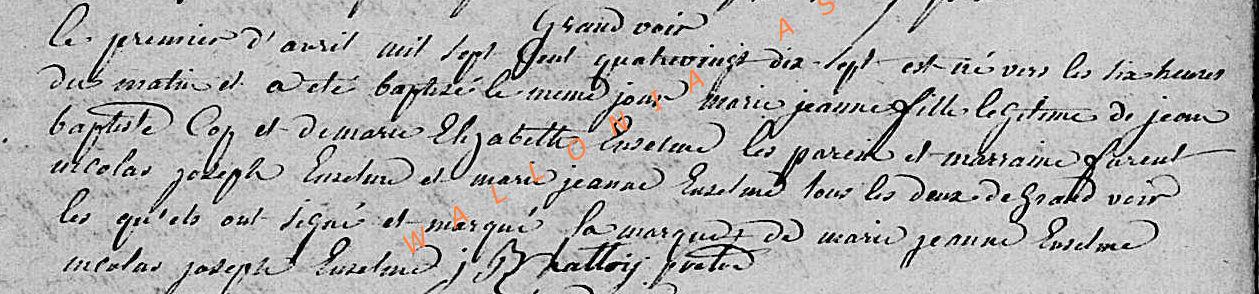 Grand voir
le premier d'avril mil sept cent quatrevingt dix-sept est né vers les six heures
du matin et a eté baptisé le meme jour marie jeanne fille legitime de jean
baptiste Cop et de marie Elizabeth Enselme les parein et marraine furent
nicolas joseph Enselme et marie jeanne Enselme tous les deux de Grand voir
les qu'els ont signé et marqué la marque + de marie jeanne Enselme
nicolas joseph Enselme j pretre
WALLONIA AS